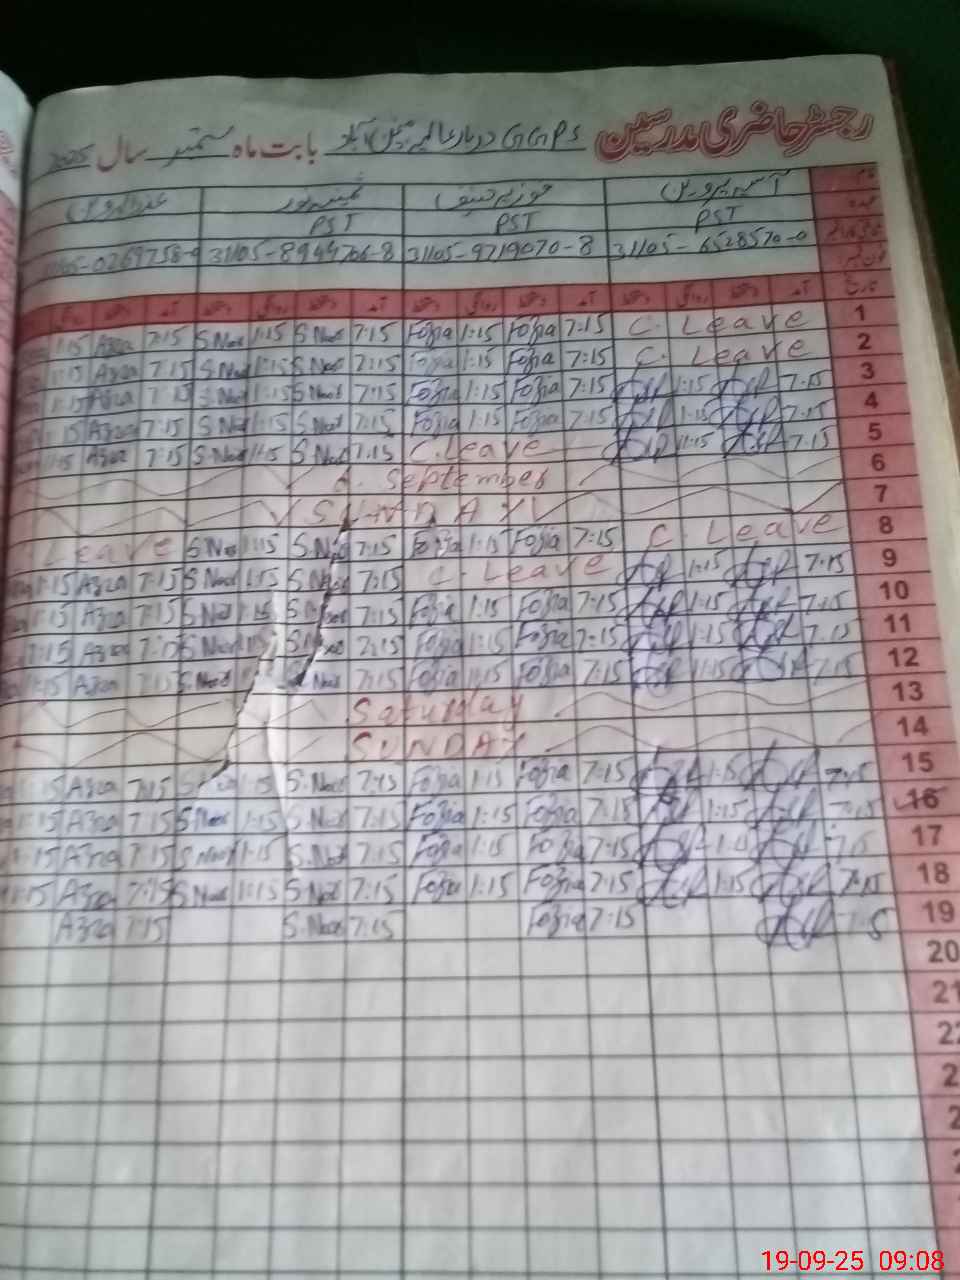 رجسٹر حاضری مدرسین GGPS دربار عالیہ بابت ماہ ستمبر سال 2025
نام آسیہ پروین فوزیہ حنیف ثمینہ نور عذرا پروین
عہدہ PST PST PST
31105-6528570-0 31105-9719070-8 31105-8944706-8 0269758-9
تاریخ آمد دستخط روانگی دستخط آمد دستخط روانگی دستخط آمد دستخط روانگی دستخط آمد دستخط روانگی
1:15 Azra 7:15 S.Noor 1:15 S.Noor 7:15 Fozia 1:15 Fozia 7:15 C. Leave 1
1:15 Azra 7:15 S.Noor 1:15 S.Noor 7:15 Fozia 1:15 Fozia 7:15 C. Leave 2
1:15 Azra 7:15 S.Noor 1:15 S.Noor 7:15 Fozia 1:15 Fozia 7:15 1:15 7:15 3
1:15 Azra 7:15 S.Noor 1:15 S.Noor 7:15 Fozia 1:15 Fozia 7:15 1:15 7:15 4
1:15 Azra 7:15 S.Noor 1:15 S.Noor 7:15 C.Leave 1:15 7:15 5
6. September 6
SUNDAY 7
Leave S.Noor 1:15 S.Noor 7:15 Fozia 1:15 Fozia 7:15 C. Leave 8
1:15 Azra 7:15 S.Noor 1:15 S.Noor 7:15 C. Leave 1:15 7:15 9
1:15 Azra 7:15 S.Noor 1:15 S.Noor 7:15 Fozia 1:15 Fozia 7:15 1:15 7:15 10
1:15 Azra 7:15 S.Noor 7:15 Fozia 1:15 Fozia 7:15 1:15 7:15 11
1:15 Azra 7:15 S.Noor Noor 7:15 Fozia 1:15 Fozia 7:15 1:15 7:15 12
Saturday 13
SUNDAY 14
1:15 Azra 7:15 1:15 S.Noor 7:15 Fozia 1:15 Fozia 7:15 1:15 7:15 15
1:15 Azra 7:15 S.Noor 1:15 S.Noor 7:15 Fozia 1:15 Fozia 7:15 1:15 7:15 16
1:15 Azra 7:15 S.Noor 1:15 S.Noor 7:15 Fozia 1:15 Fozia 7:15 1:15 7:15 17
1:15 Azra 7:15 S.Noor 1:15 S.Noor 7:15 Fozia 1:15 Fozia 7:15 1:15 7:15 18
Azra 7:15 S.Noor 7:15 Fozia 7:15 7:15 19
20
21
19-09-25 09:08